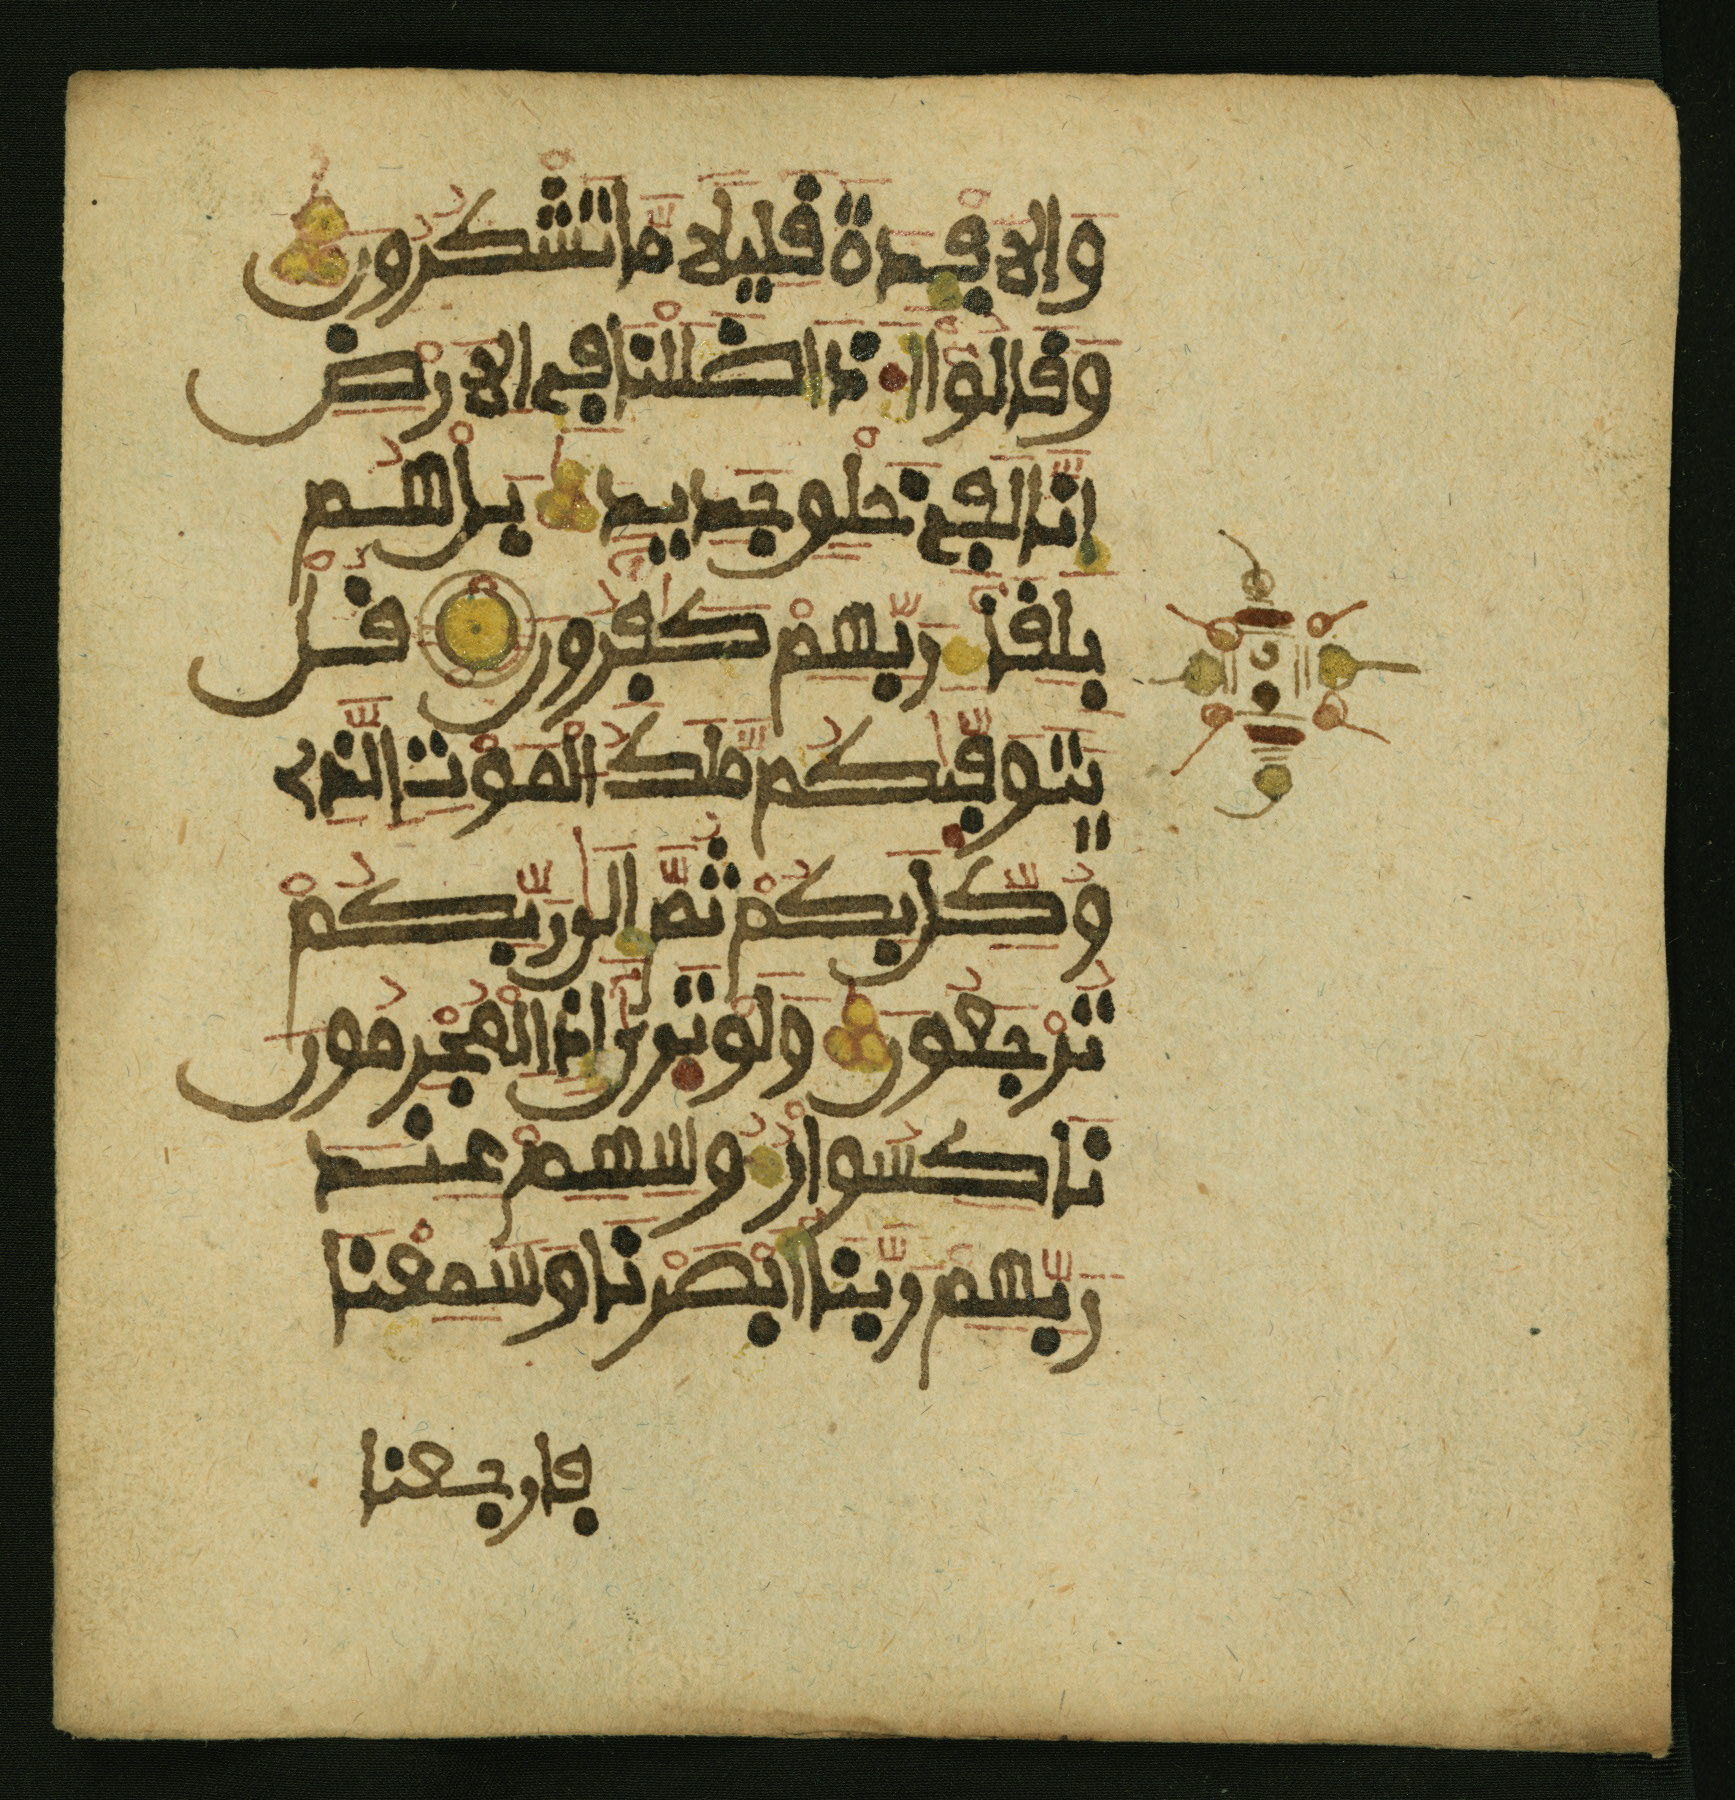 وَالَافْـِٕدَةَ قَلِيلاً مَّا تَشْكُرُونَ
وَقَالُوٓاْ أَ.ذَا ضَلَلْنَا فِي الَارْضِ
إِنَّا لَفِي خَلْقٍ جَدِيدٍ بَلْ هُم
بِلِقَآءِ رَبِّهِمْ كَٰفِرُونَ قُلْ
يَتَوَفَّيٰكُم مَّلَكُ الْمَوْتِ الَّذِي
وُكِّلَ بِكُمْ ثُمَّ إِلَىٰ رَبِّكُمْ
تُرْجَعُونَ وَلَوْ تَرَىٰٓ إِذِ الْمُجْرِمُونَ
نَاكِسُواْ رُءُوسِهِمْ عِندَ
رَبِّهِمْ رَبَّنَآ أَبْصَرْنَا وَسَمِعْنَا
فارجعنا